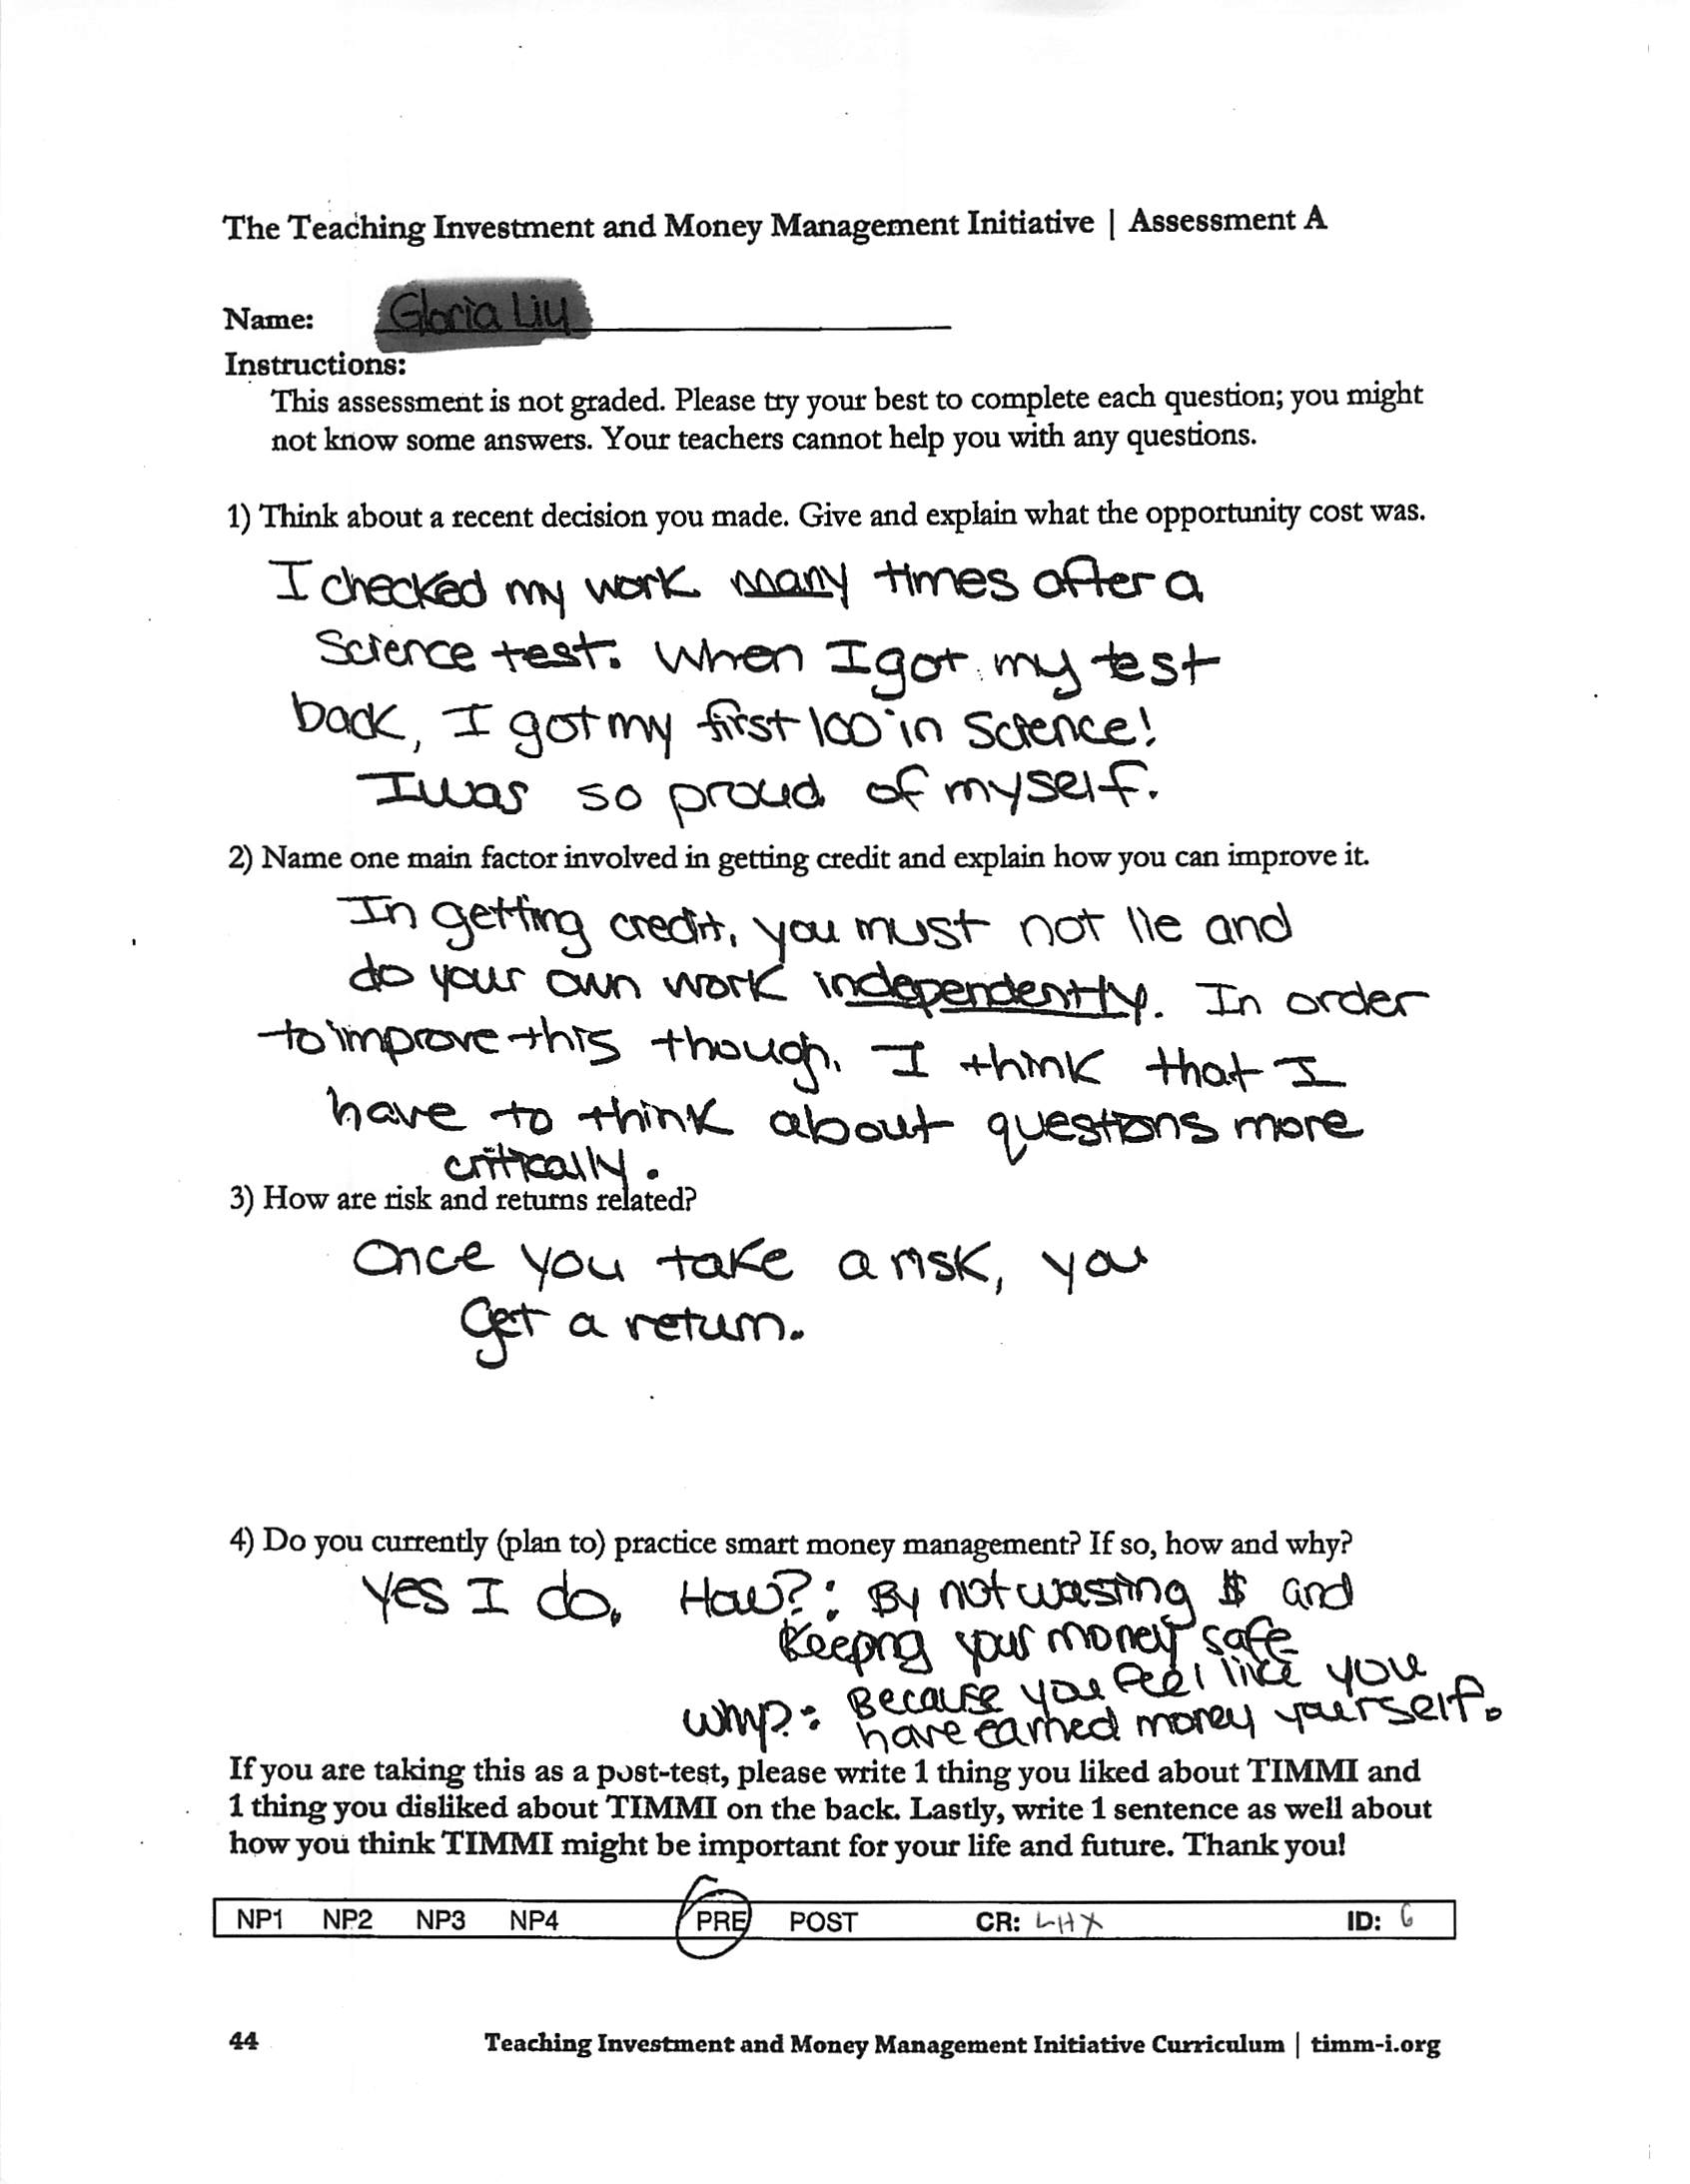 The Teaching Investment and Money Management Initiative | Assessment A
Name: Gloria Liu
Instructions:
This assessment is not graded. Please try your best to complete each question; you might
not know some answers. Your teachers cannot help you with any questions.
1) Think about a recent decision you made. Give and explain what the opportunity cost was.
I checked my work many times after a
Science test. When I got my test
back, I got my first 100 in Science!
I was so proud of myself.
2) Name one main factor involved in getting credit and explain how you can improve it.
In getting credit, you must not lie and
do your own work independently. In order
to improve this though, I think that I
have to think about questions more
critically.
3) How are risk and returns related?
Once you take a risk, you
Get a return.
4) Do you currently (plan to) practice smart money management? If so, how and why?
Yes I do. How?: By not wasting $ and
Keeping your money safe
Why?: Because you feel like you
have earned money yourself.
If you are taking this as a post-test, please write 1 thing you liked about TIMMI and
1 thing you disliked about TIMMI on the back. Lastly, write 1 sentence as well about
how you think TIMMI might be important for your life and future. Thank you!
NP1 NP2 NP3 NP4 PRE POST CR: LHX ID: 6
44 Teaching Investment and Money Management Initiative Curriculum | timm-i.org